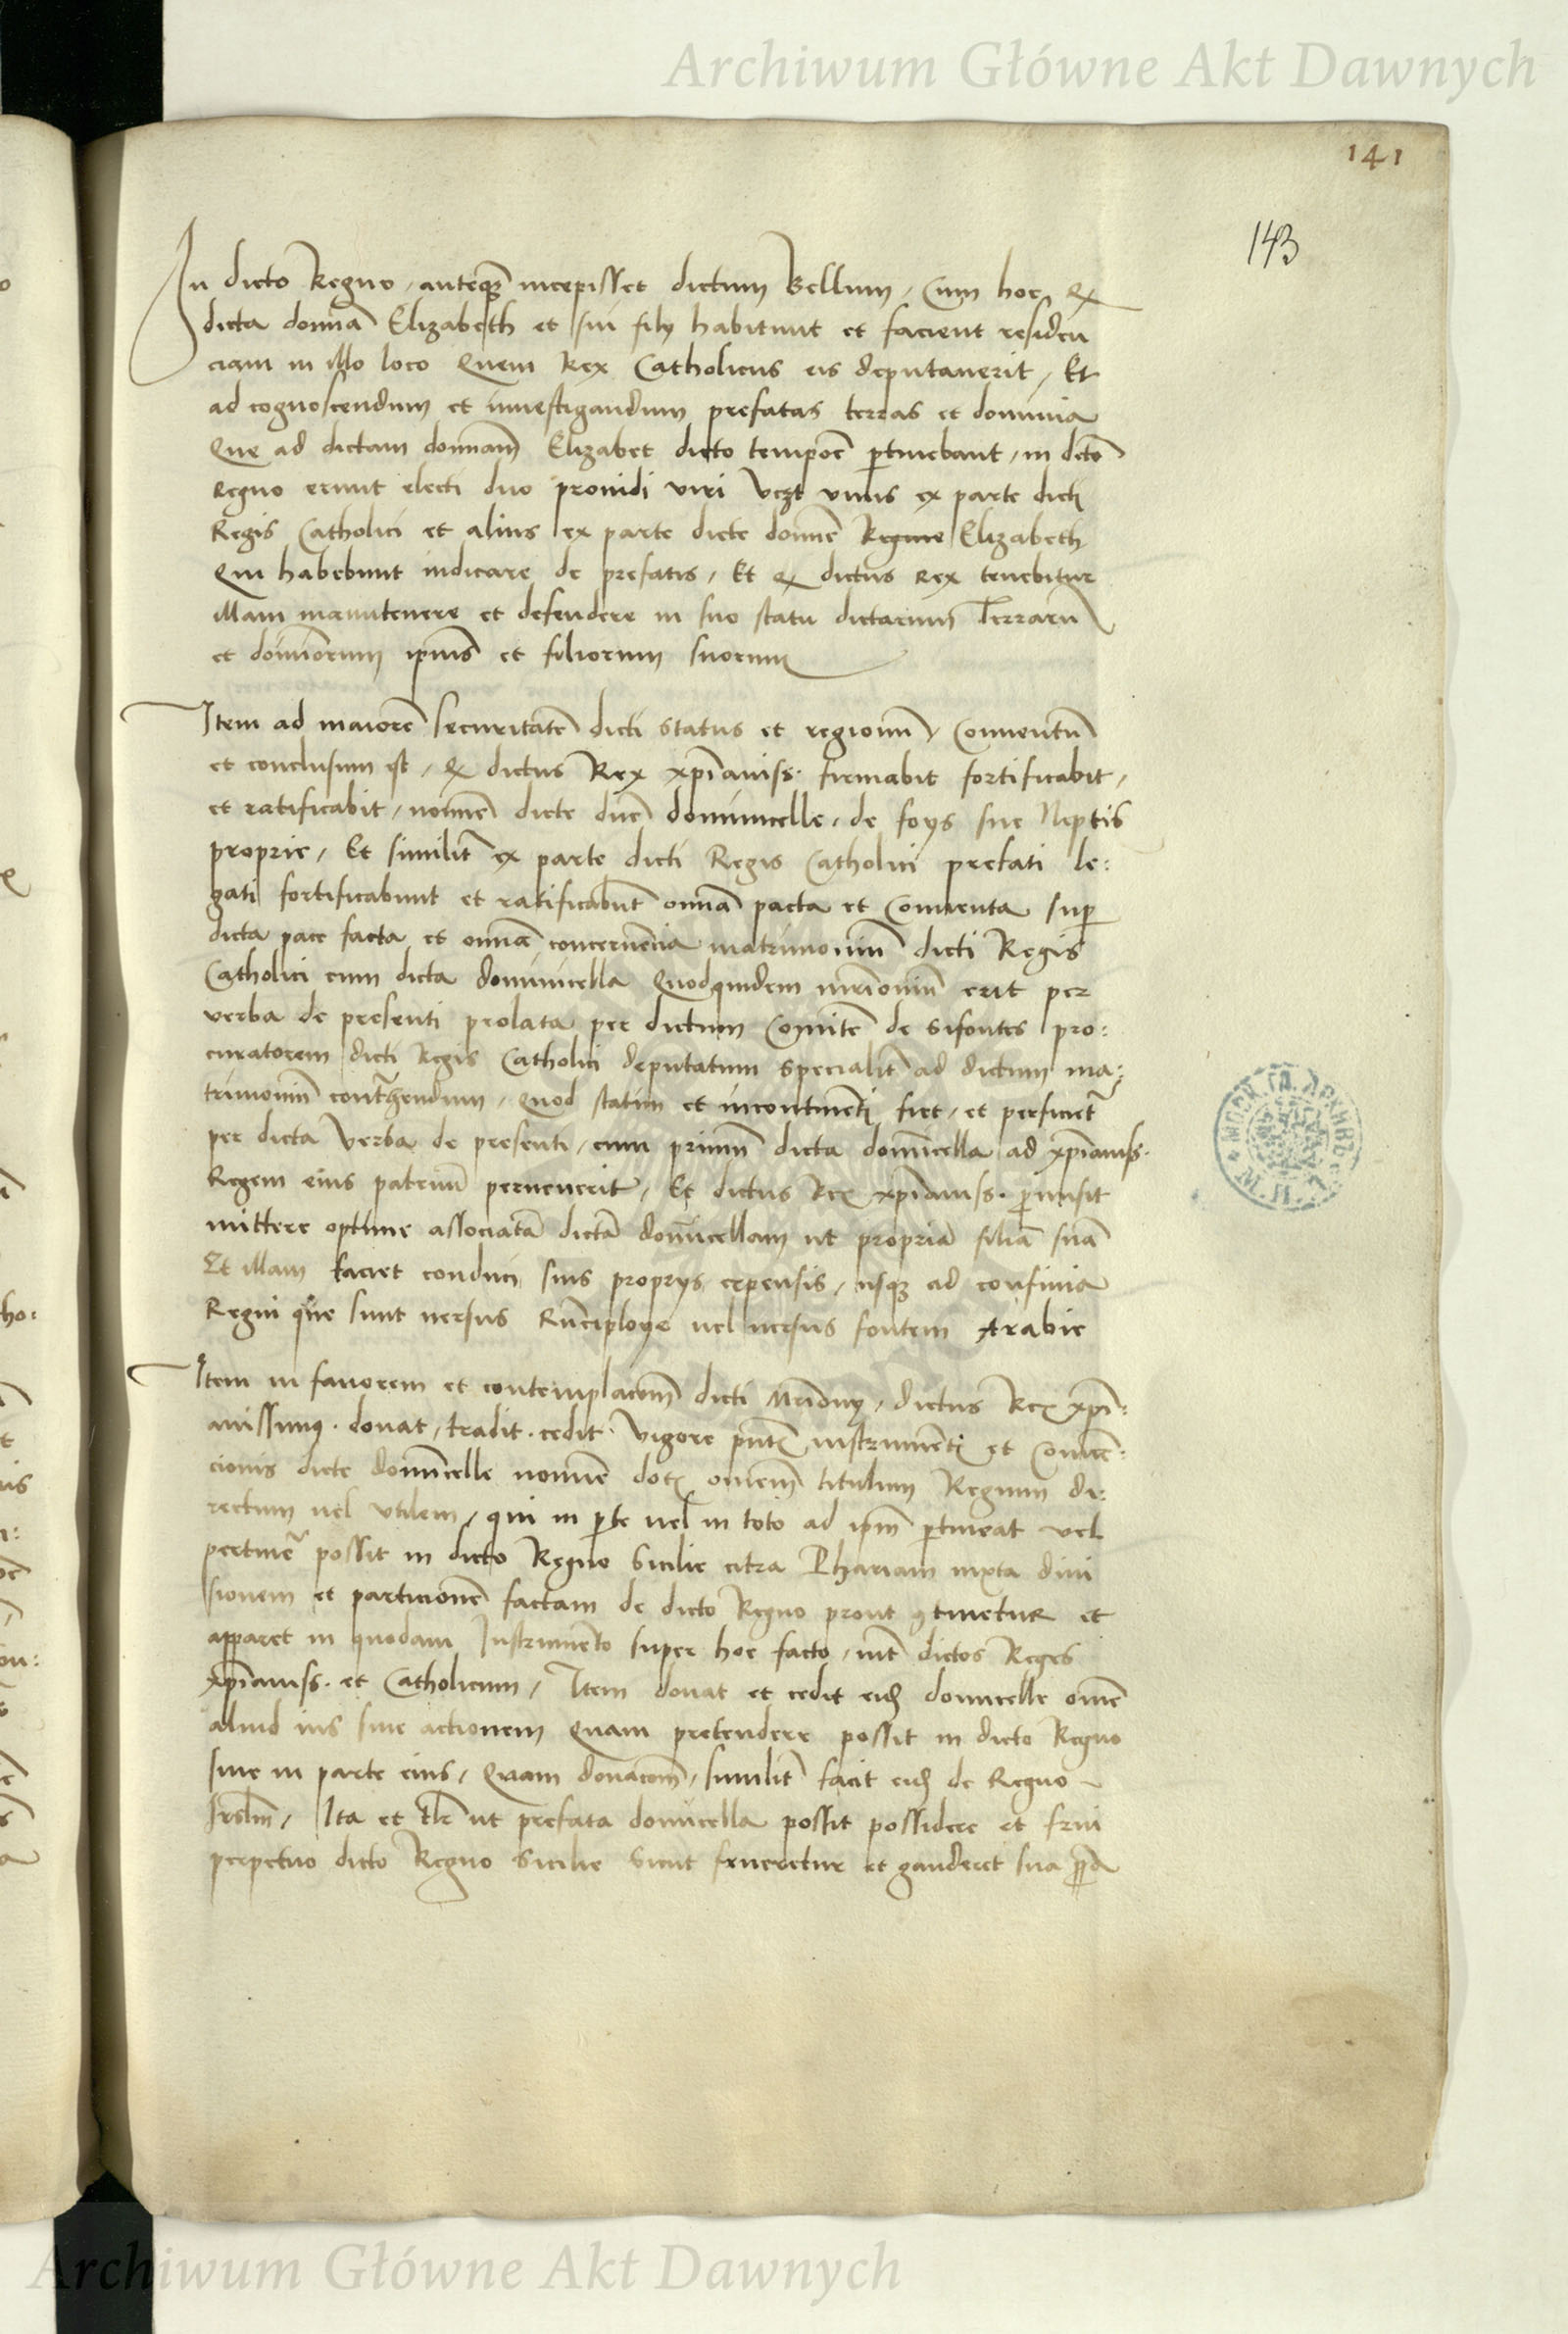 Archiwum Główne Akt Dawnych
141
143
In dicto Regno, anteqȝ incepisset dictum Bellum, Cum hoc, ꝙ
dicta domna Elizabeth et sui filij habitunt et facient residen
ciam in illo loco Quem Rex Catholicus eis deputaverit, Et
ad cognoscendum et investigandum prefatas terras et dominia
Que ad dictam domnam Elizabet dicto tempoē ꝑtinebant, in dcto
Regno erunt electi duo providi viri Vꝫt unus ex parte dicti
Regis Catholici et alius ex parte dicte domne Regine Elizabeth
Qui habebunt indicare de prefatis, Et ꝙ dictus Rex tenebitur
illam manutenere et defendere in suo statu dictarum Terrarū
et dominorum ipius et filiorum suorum
Item ad maiorē securitatē dicti status et regionū, Conventū
et conclusum est, ꝙ dictus Rex xpianiss. firmabit fortificabit,
et ratificabit, nomē dicte dnē domuncelle, de foys sue Neptis
proprie, Et similit̄ ex parte dicti Regis Catholici prefati le:
gati fortificabunt et ratificabūt omnā pacta et Conventa suꝑ
dicta pace facta et omnā concernēcia matrimoniū dicti Regis
Catholici cum dicta domicella Quodquidem mrīoniū erit per
verba de presenti prolata per dictum Comitē de Sifontes pro:
curatorem dicti Regis Catholici deputatum specialit̄ ad dictum ma:
trimoniū contʳhendum, Quod statim et incontinenti fiet, et perficiet̄
per dicta Verba de presenti, cum primū dicta domicella ad xpianiss.
Regem eius patruū pervenerit, Et dictus Rex xpianiss. ꝑmisit
mittere optime associatā dictā domicellam ut propriā filiā suā
Et illam faciet conduci suis proprijs expensis, usqȝ ad confinia
Regni que sunt versus Rūciploye vel versus fontem Arabie
Item in favorem et contemplacōm dicti Mrīonij, dictus Rex xpi:
anissimꝰ. donat, tradit. cedit. Vigore pntꝭ instrumenti et Conven:
cionis dicte domicelle nomine dotꝭ omnem titulum Regnum di:
rectum vel Utilem, qui in ꝑte vel in toto ad ipm ꝑtineat vel
pertinē possit in dicto Regno Sicilie citra Phariam iuxta divi
sionem et particionē factam de dicto Regno prout ꝯtinetur et
apparet in quodam Instrumēto super hoc facto, int̄ dictos Reges
xpianiss. et Catholicum, Item donat et cedit eidē domicelle omē
aliud ius sive actionem Quam pretendere possit in dicto Regno
sive in parte eius, Quam donacōm, similit̄ facit eidē de Regno
Jrslm, Ita et tlr̄ ut prefata domicella possit possidere et frui
perpetuo dicto Regno Sicilie sicut frueretur et gauderet sua ꝓpā
Archiwum Główne Akt Dawnych